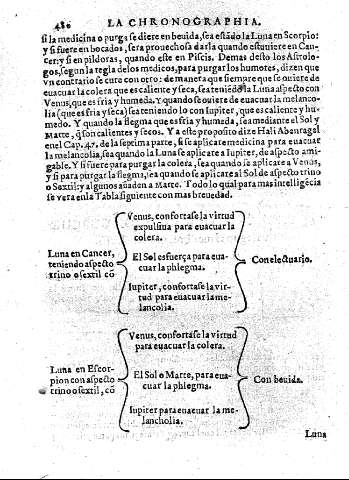 480 LA CHRONOGRAPHIA.
si la medicina o purga se diere en beuida, sea estãdo la Luna en Scorpio:
y si fuere en bocados, sera prouechosa darla quando estuuiere en Can-
cer; y si en pildoras, quando este en Piscis. Demas desto los Astrolo-
gos, segun la regla de los medicos, para purgar los humores, dizen que
vn contrario se cure con otro: de manera que siempre que se ouiere de
euacuar la colera que es caliente y seca, sea teniẽdo la Luna aspecto con
Venus, que es fria y humeda. Y quando se ouiere de euacuar la melanco-
lia (que es fria y seca) sea teniendo lo con Iupiter, que es caliente y hu-
medo. Y quando la flegma que es fria y humeda, sea mediante el Sol y
Marte, q̃ son calientes y secos. Y a este proposito dize Hali Abenragel
en el Cap. 47. de la septima parte, si se aplicare medicina para euacuar
la melancolia, sea quando la Luna se aplicare a Iupiter, de aspecto ami-
gable. Y si fuere para purgar la colera, sea quando se aplicare a Venus,
y si para purgar la flegma, sea quando se aplicare al Sol de aspecto trino
o Sextil: y algunos añaden a Marte. Todo lo qual para mas intelligẽcia
se vera en la Tabla siguiente con mas breuedad.
Luna en Cancer,
teniendo aspecto
trino o sextil cõ
Venus, confortase la virtud
expulsiua para euacuar la
colera.
El Sol esfuerça para eua-
cuar la phlegma.
Iupiter, confortase la vir-
tud para euacuar la me-
lancolia.
Con electuario.
Luna en Escor-
pion con aspecto
trino o sextil, cõ
Venus, confortase la virtud
para euacuar la colera.
El Sol o Marte, para eua-
cuar la phlegma.
Iupiter para euacuar la me-
lancholia.
Con beuida.
Luna